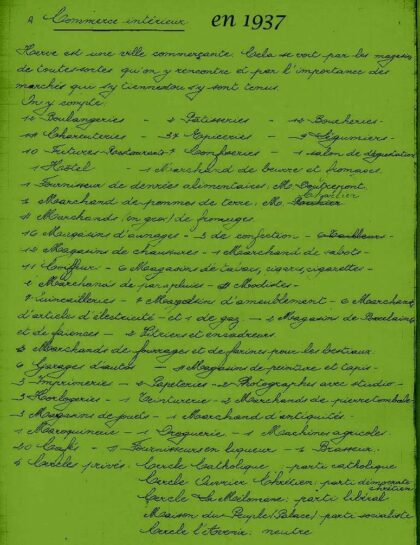 A Commerce intérieur en 1937
Herve est une ville commerçante. Cela se voit par les magasins
de toutes sortes qu'on y rencontre et par l'importance des
marchés qui s'y tiennent ou s'y sont tenus.
On y compte:
Boulangeries - Pâtisseries - Boucheries -
Charcuteries - Epiceries - Légumiers -
10 Fritures Restaurant Confiseries - 1 salon de dégustation
1 Hôtel - 1 Marchand de beurre et fromages.
1 Fournisseur de denrées alimentaires, M.
Marchand de pommes de terre, M.
Marchands (en gros) de fromages.
16 Magasins d'aunages - 3 de confection -
12 Magasins de chaussures - 1 Marchand de sabots -
11 Coiffeur - 6 Magasins de tabac, cigares, cigarettes -
Marchand de parapluies - Modistes -
Quincailleries - 7 Magasins d'ameublement - 6 Marchands
d'articles d'électricité - et 1 de gaz - 2 Magasin de Porcelaine
et de faïences - 2 Vitriers et encadreurs.
Marchands de fourrages et de farines pour les bestiaux
6 Garages d'autos - Magasins de peinture et tapis -
3 Imprimeries - 2 Papeteries - 2 Photographes avec studio -
3 Horlogeries - 1 Teinturerie - 2 Marchands de pierre tombale -
3 Magasins de jouets - 1 Marchand d'antiquités -
1 Maroquineur - 1 Droguerie - 1 Machines agricoles
20 Cafés - Fournisseurs en liqueur - Brasseur.
Cercles privés: Cercle Catholique: parti catholique
Cercle Ouvrier Chrétien: parti démocrate chrétien
Cercle La Mélomane: parti libéral
Maison du Peuple (Palace): parti socialiste
Cercle l'Avenir: neutre